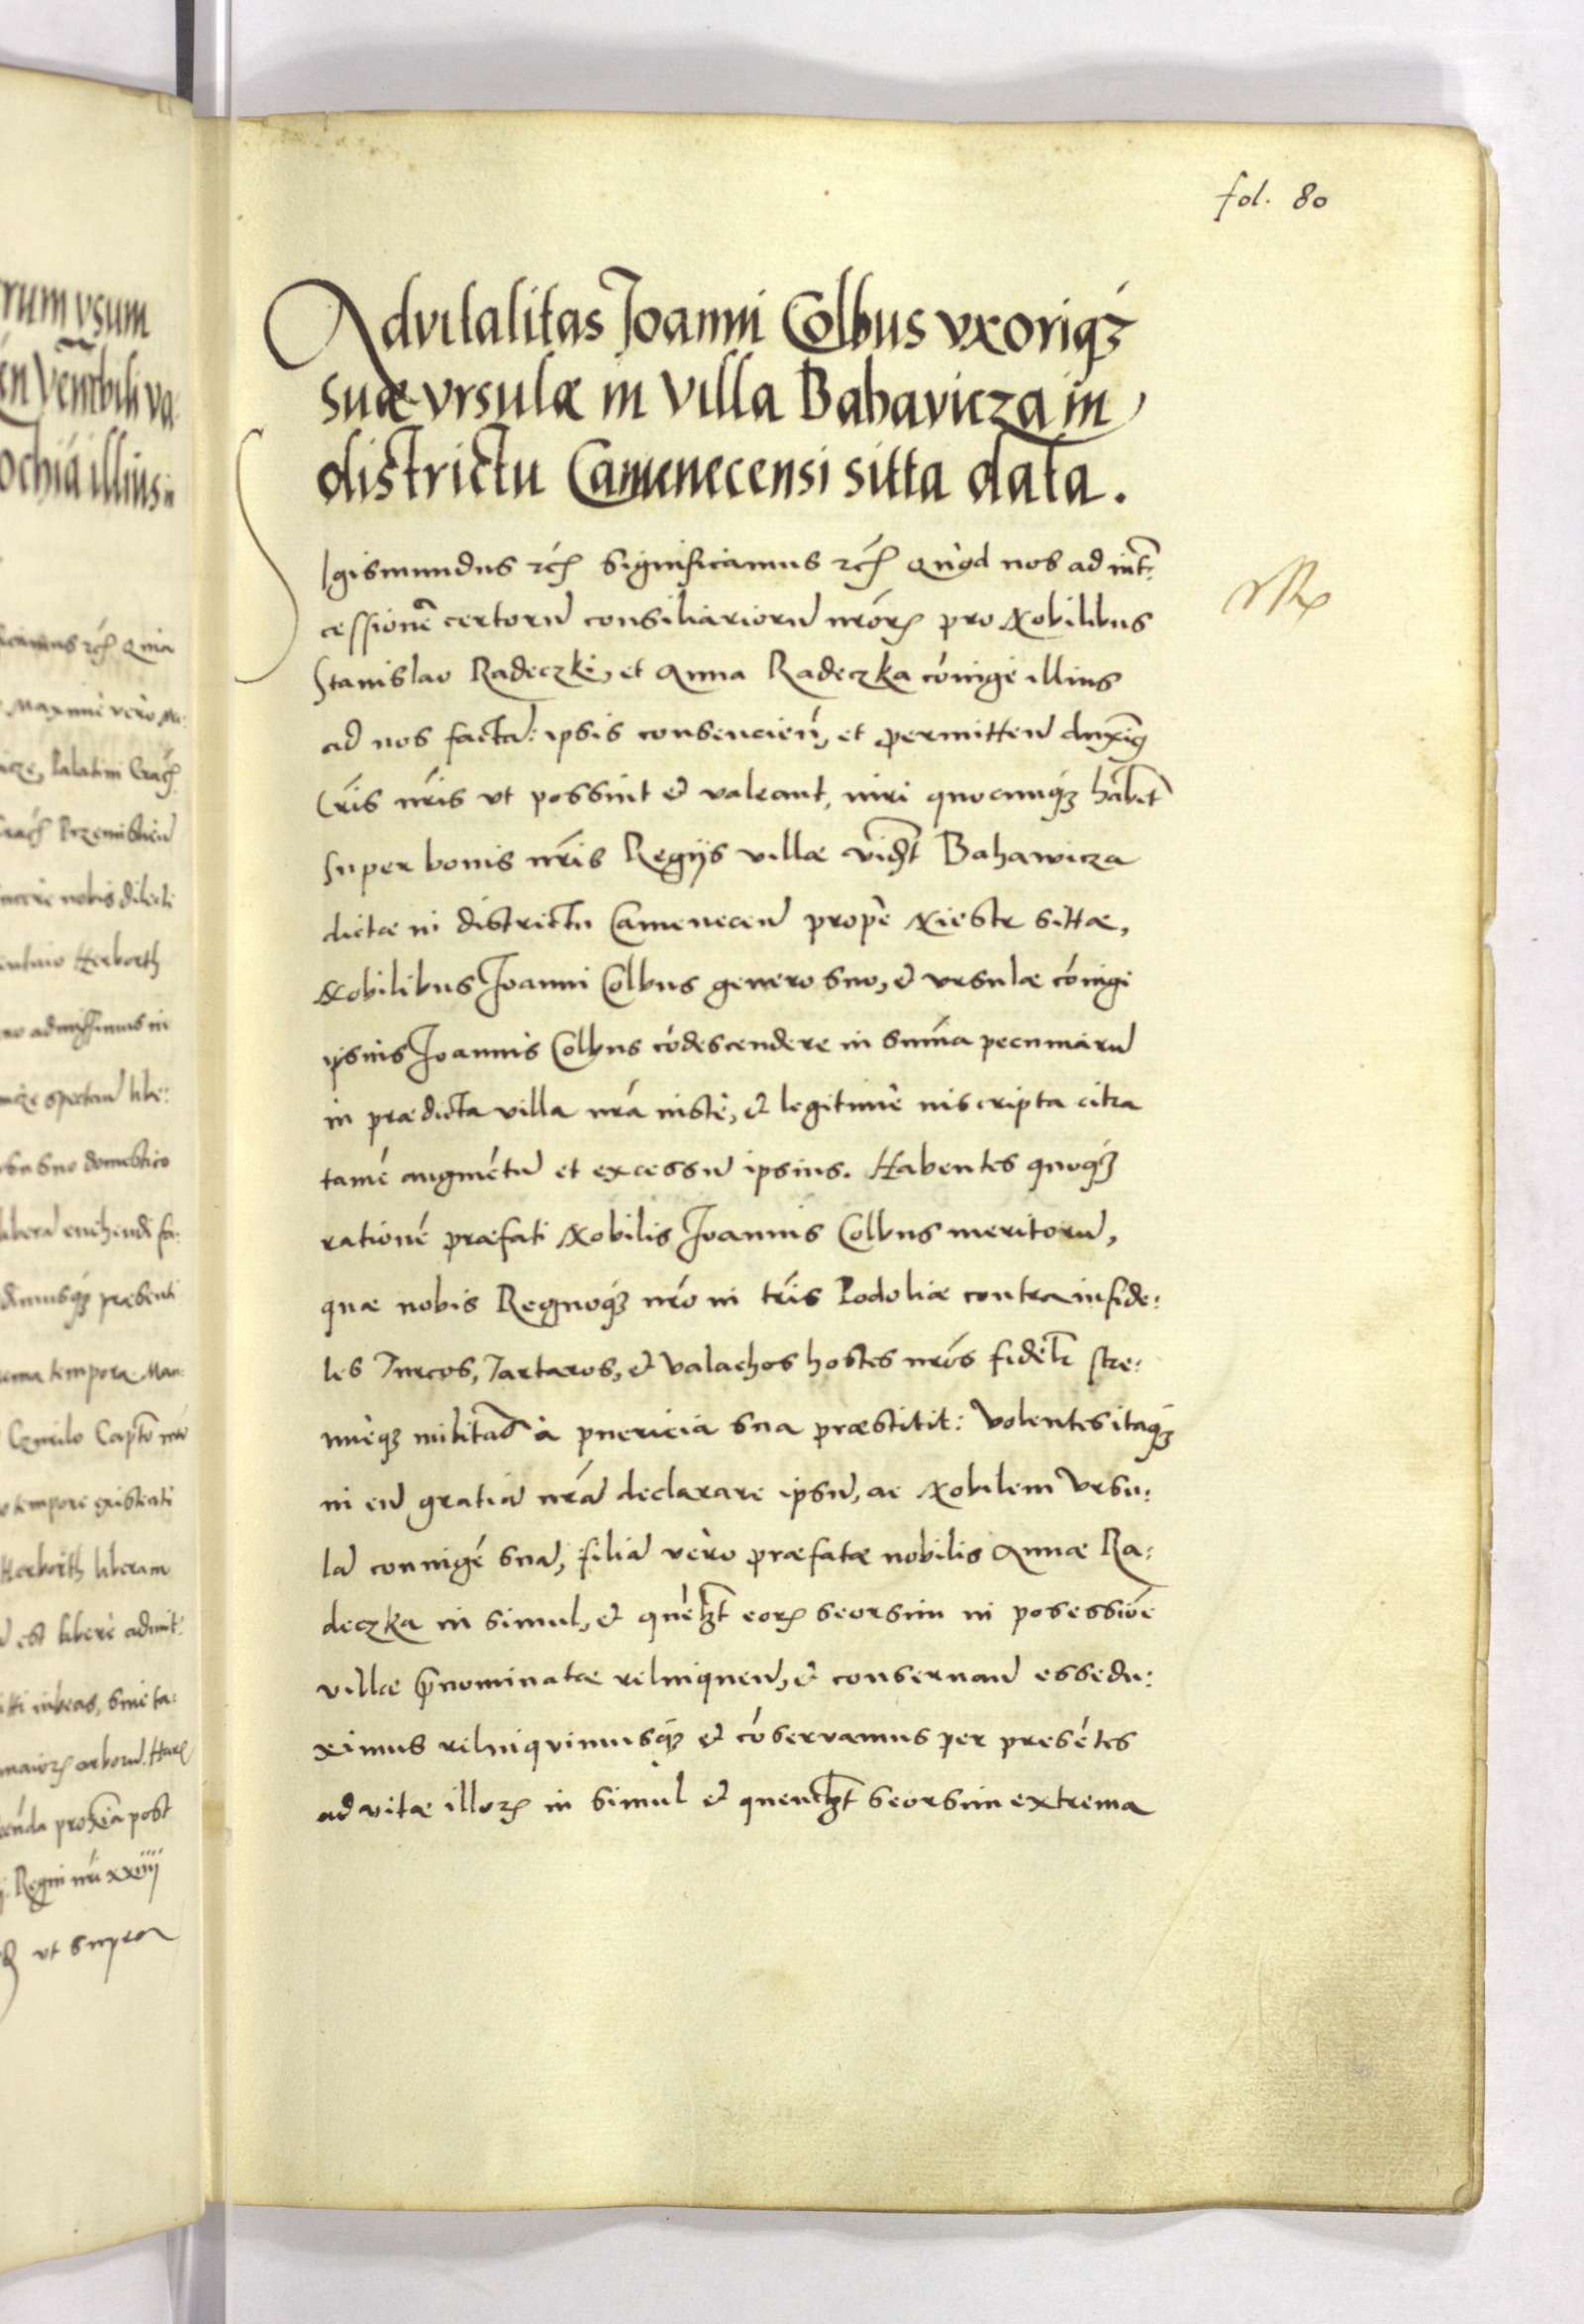 fol. 80
Advitalitas Joanni Colbus vxoriqȝ
suæ vrsulæ in villa Bahavicza in
districtu Camenecensi sitta data.
SIgismundus rcꝭ Significamus rcꝭ Quòd nos ad int̃:
cessionẽ certorũ consiliariorũ nrõrꝭ pro Nobilibus
Stanislao Radeczki, et Anna Radeczka cõiuge illius
ad nos factã: ipsis consencien̄, et permitten̄ duxim⁹
lr̃is nr̃is vt possint et valeant, iuri quocunqȝ habẽt
super bonis nr̃is Regijs villæ vidȝt Bahawicza
dictæ in districtu Camenecen̄ propè Niestr sittæ,
Nobilibus Joanni Colbus genero suo, et vrsulæ cõiugi
ipsius Joannis Colbus cõdescendere in sum̃a pecuniarũ
in prædicta villa nr̃a iustè, et legitimè inscripta citra
tamẽ augmẽtũ et excessũ ipsius. Habentes quoqȝ
rationẽ præfati Nobilis Joannis Colbus meritorũ,
quæ nobis Regnoqȝ nr̃o in tr̃is Podoliæ contra infide:
les Turcos, Tartaros, et Valachos hostes nr̃os fidel̃r stre:
nuèqȝ militãd à puericia sua præstitit: Volentes itaqȝ
in eũ gratiã nr̃ã declarare ipsũ, ac Nobilem Vrsu:
lã coniugẽ suã, filiã verò præfatæ nobilis Annæ Ra:
deczka in simul, et quẽlȝt eorꝭ seorsim in possessiõe
villæ p̃nominatæ relinquen̄, et conseruan̄ esse du:
ximus relinquimusqȝ et cõservamus per presẽtes
ad vitæ illorꝭ in simul et quemlȝt seorsim extrema